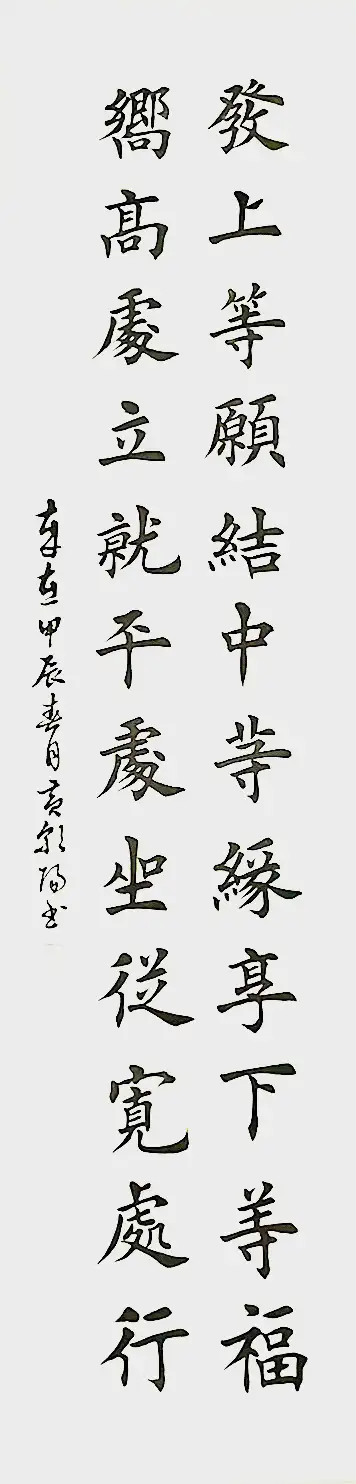 發上等願結中等緣享下等福
嚮高處立就平處坐從寬處行
在甲辰春月黃陽書